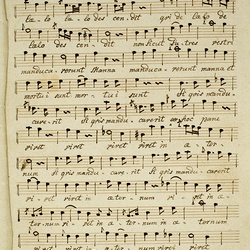 lo lo lo des cen dit qui de lo de
lolo des cen dit non sicut Patres vestri
manduca verunt Manna manduca verunt manna et
mortui sunt mor tui sunt Si quis mandu
cave rit Si quis mandu cave rit hoc pane
vivet vivet vivet in æ ter
num Si quis mandu cave rit Si quis manducaverit
vivet vivet in æ ter num vi vet in æ
ternum vi vet in æ ternum vi vet in æ ternum
vivet in æ ter num vivet vivet